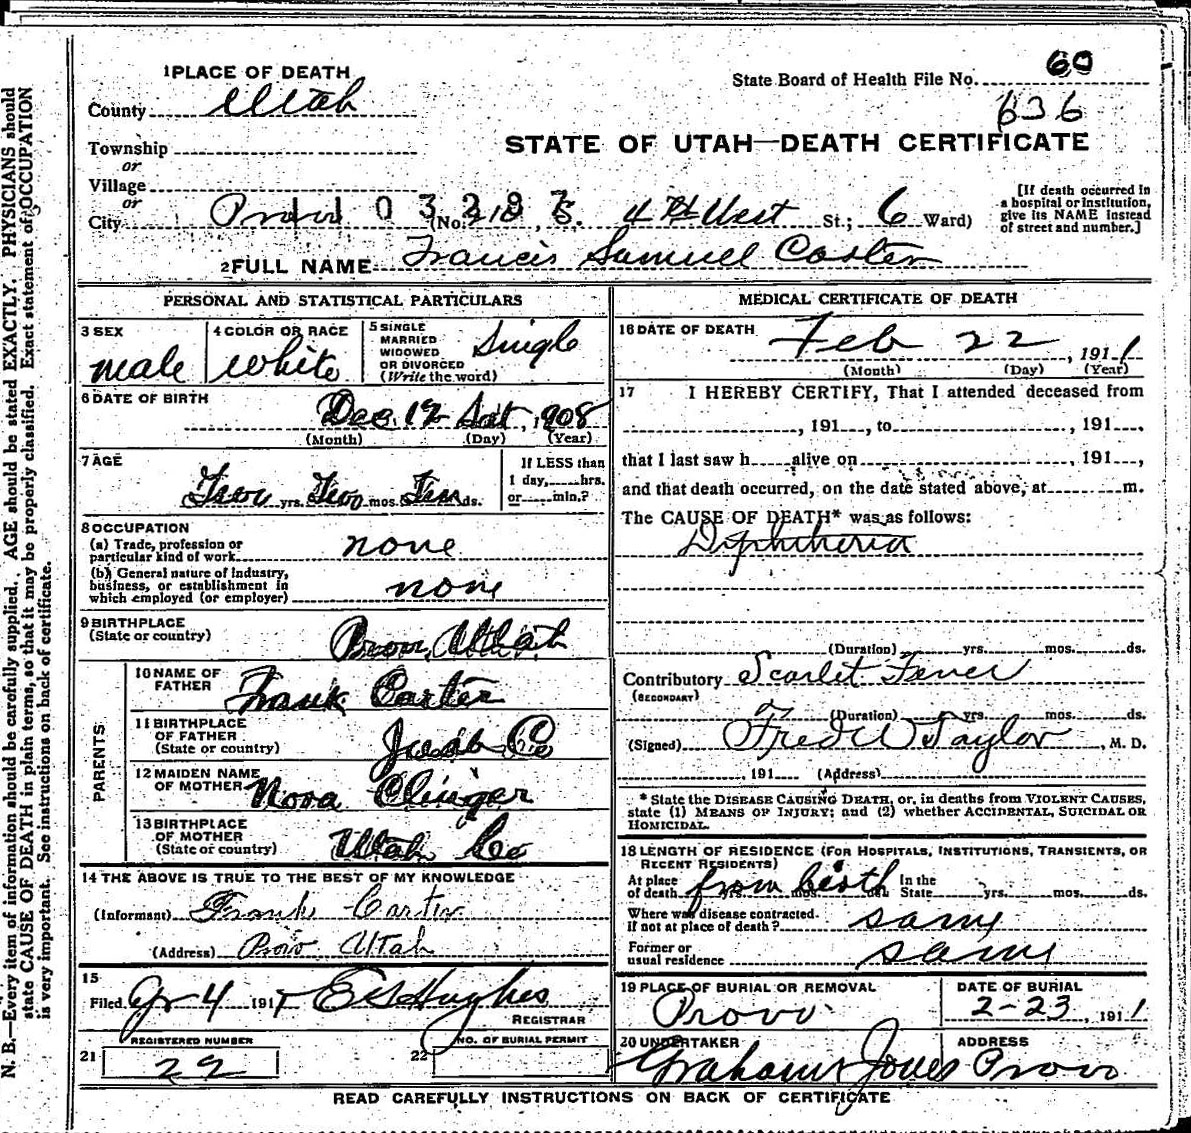 1 PLACE OF DEATH
County Utah
State Board of Health File No. 60
636
Township
or
Village
or
City Provo (No. 210 S. 4th West St.; 6 Ward)
1103297
STATE OF UTAH—DEATH CERTIFICATE
[If death occurred in
a hospital or institution,
give its NAME instead
of street and number.]
2 FULL NAME Francis Samuel Carter
PERSONAL AND STATISTICAL PARTICULARS
3 SEX
male
4 COLOR OR RACE
white
5 SINGLE
MARRIED
WIDOWED
OR DIVORCED
(Write the word)
Single
6 DATE OF BIRTH
Dec. 12 Sat, 1908
(Month) (Day) (Year)
7 AGE
Two yrs. Two mos. Ten ds.
If LESS than
1 day, hrs.
or min.?
8 OCCUPATION
(a) Trade, profession or
particular kind of work none
(b) General nature of industry,
business, or establishment in
which employed (or employer) none
9 BIRTHPLACE
(State or country) Provo, Utah
PARENTS
10 NAME OF
FATHER Frank Carter
11 BIRTHPLACE
OF FATHER
(State or country) Juab Co
12 MAIDEN NAME
OF MOTHER Nora Clinger
13 BIRTHPLACE
OF MOTHER
(State or country) Utah Co
14 THE ABOVE IS TRUE TO THE BEST OF MY KNOWLEDGE
(Informant) Frank Carter
(Address) Provo Utah
15
Filed 4 191 Hughes
REGISTRAR
REGISTERED NUMBER
21 29
NO. OF BURIAL PERMIT
22
MEDICAL CERTIFICATE OF DEATH
16 DATE OF DEATH
Feb 22, 1911
(Month) (Day) (Year)
17 I HEREBY CERTIFY, That I attended deceased from
, 191 , to , 191 ,
that I last saw h alive on , 191 ,
and that death occurred, on the date stated above, at m.
The CAUSE OF DEATH* was as follows:
Diphtheria
(Duration) yrs. mos. ds.
Contributory Scarlet Fever
(SECONDARY)
(Duration) yrs. mos. ds.
(Signed) Fred W Taylor, M. D.
, 191 (Address)
* State the DISEASE CAUSING DEATH, or, in deaths from VIOLENT CAUSES,
state (1) MEANS OF INJURY; and (2) whether ACCIDENTAL, SUICIDAL OR
HOMICIDAL.
18 LENGTH OF RESIDENCE (FOR HOSPITALS, INSTITUTIONS, TRANSIENTS, OR
RECENT RESIDENTS)
At place
of death from birth yrs. mos. ds. In the
State yrs. mos. ds.
Where was disease contracted
if not at place of death? same
Former or
usual residence same
19 PLACE OF BURIAL OR REMOVAL
Provo
DATE OF BURIAL
2-23, 1911
20 UNDERTAKER
Graham Jones
ADDRESS
Provo
READ CAREFULLY INSTRUCTIONS ON BACK OF CERTIFICATE
N. B.—Every item of information should be carefully supplied. AGE should be stated EXACTLY. PHYSICIANS should
state CAUSE OF DEATH in plain terms, so that it may be properly classified. Exact statement of OCCUPATION
is very important. See instructions on back of certificate.